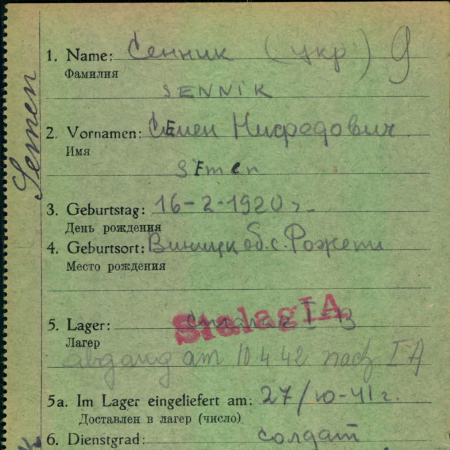 1. Name: Сенник (укр) 9
Фамилия
SENNIK
2. Vornamen: Семен Нифредович
Имя
Simen
Semen
3. Geburtstag: 16-2-1920 г.
День рождения
4. Geburtsort: Виницк об. с. Рожети
Место рождения
5. Lager: Сталаг I B
Stalag IA
Лагер
Abgang am 10 4 42 nach I A
5a. Im Lager eingeliefert am: 27/10-41 г.
Доставлен в лагер (число)
6. Dienstgrad: солдат